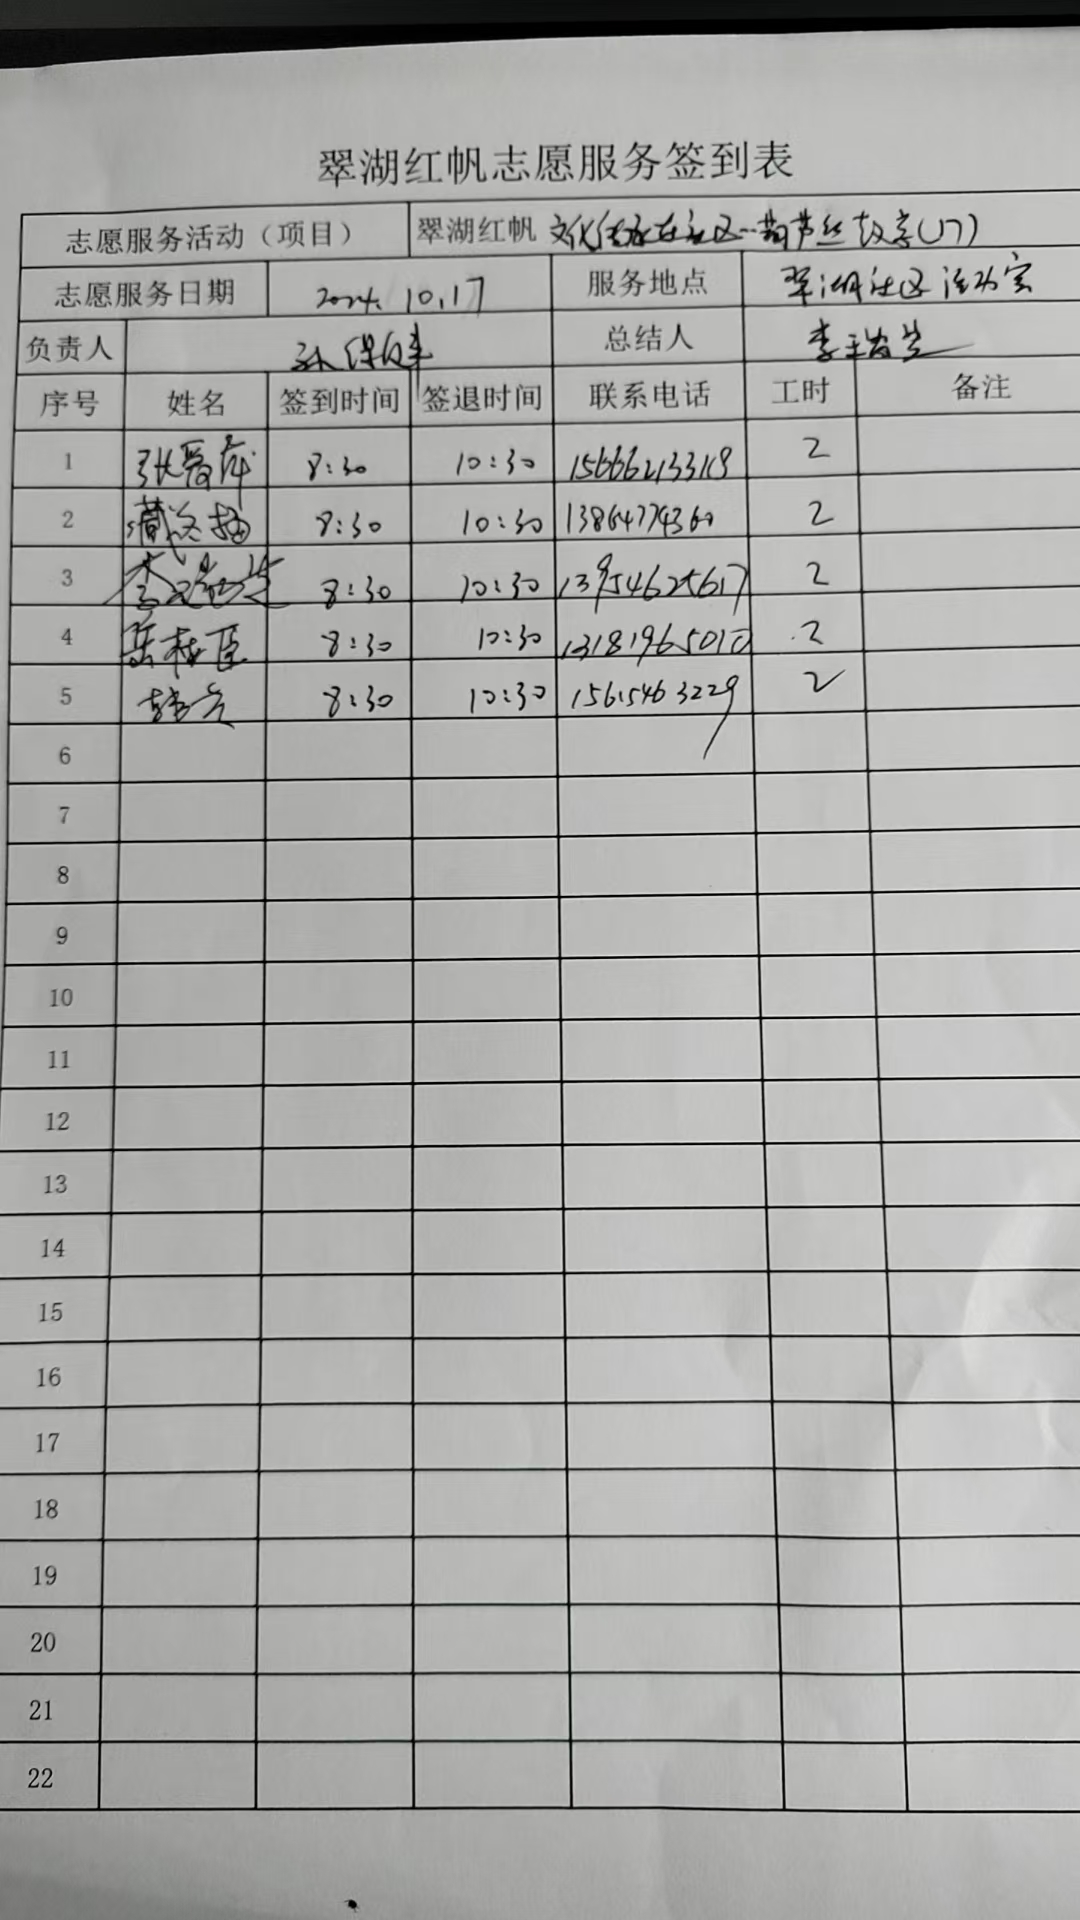 翠湖红帆志愿服务签到表
志愿服务活动（项目） 翠湖红帆 文化传承在社区一葫芦丝教学(17)
志愿服务日期 2024.10.17 服务地点 翠湖社区活动室
负责人 总结人 李
序号 姓名 签到时间 签退时间 联系电话 工时 备注
1 张爱萍 8:30 10:30 2
2 8:30 10:30 13864774360 2
3 李 8:30 10:30 13954625617 2
4 8:30 10:30 2
5 韩 8:30 10:30 15615463229 2
6
7
8
9
10
11
12
13
14
15
16
17
18
19
20
21
22